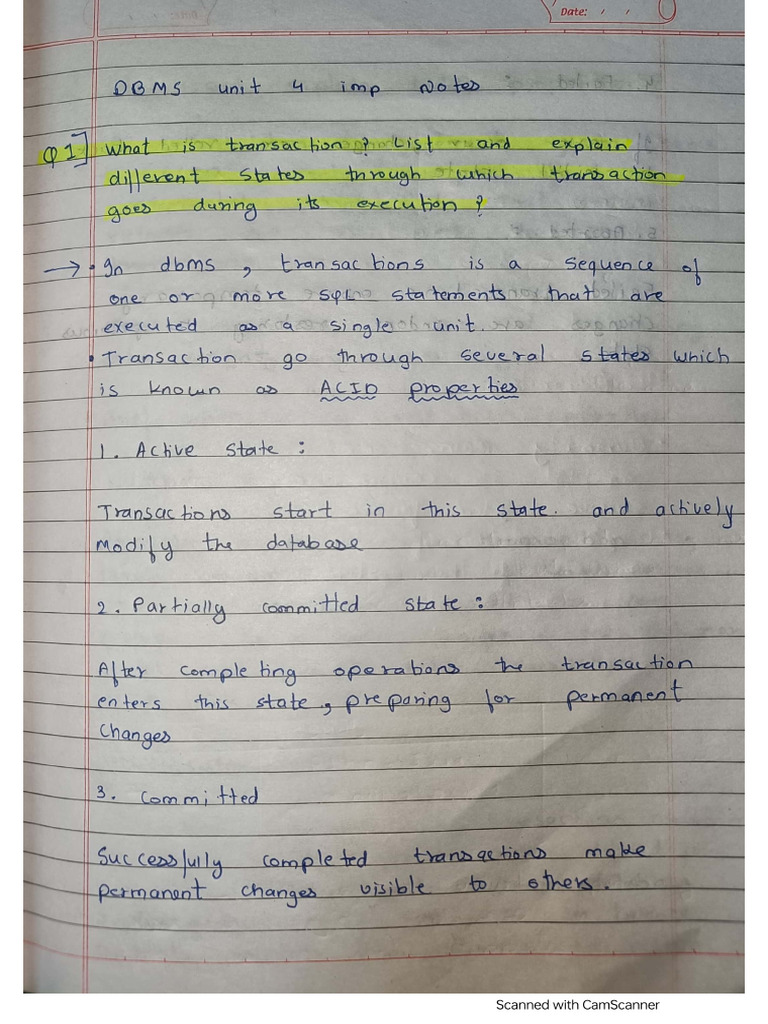 Date: / /
DBMS unit 4 imp Notes
Q1] What is transaction? List and explain
different states through which transaction
goes during its execution?
→ • In dbms, transactions is a sequence of
one or more SQL statements that are
executed as a single unit.
• Transaction go through several states which
is known as ACID properties
1. Active state :
Transactions start in this state. and actively
modify the database
2. Partially committed state :
After completing operations the transaction
enters this state, preparing for permanent
changes
3. Committed
Successfully completed transactions make
permanent changes visible to others.
Scanned with CamScanner